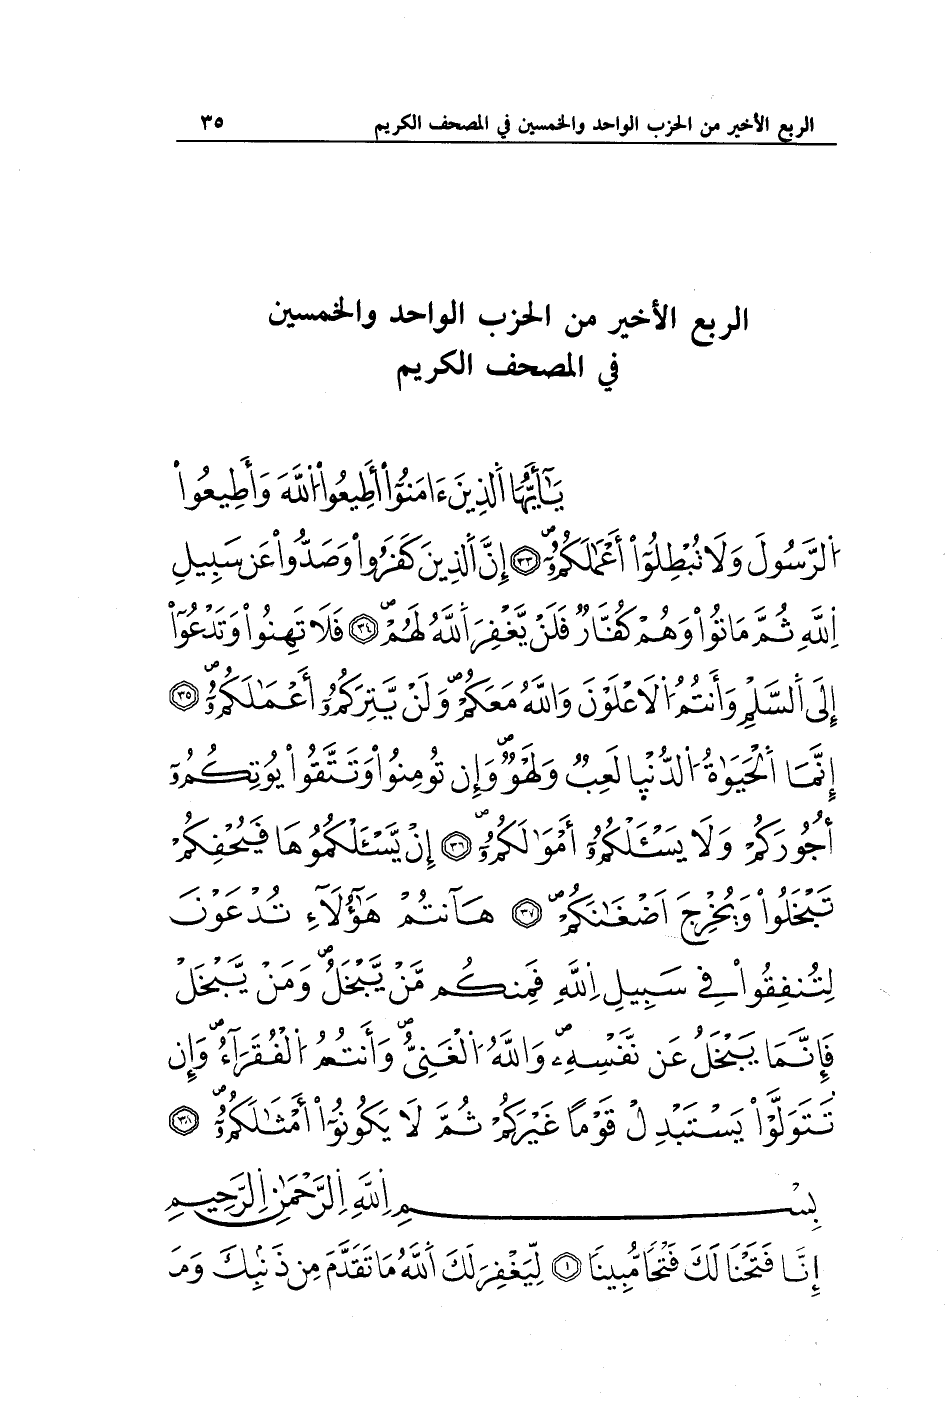 الربع الأخير من الحزب الواحد والخمسين في المصحف الكريم ٣٥
الربع الأخير من الحزب الواحد والخمسين
في المصحف الكريم
يَٰٓأَيُّهَا اَ۬لذِينَ ءَامَنُوٓاْ أَطِيعُواْ اُ۬للَّهَ وَأَطِيعُواْ
اُ۬لرَّسُولَ وَلَا تُبْطِلُوٓاْ أَعْمَٰلَكُمُۥٓۖ ٣٣ إِنَّ اَ۬لذِينَ كَفَرُواْ وَصَدُّواْ عَن سَبِيلِ
اِ۬للَّهِ ثُمَّ مَاتُواْ وَهُمْ كُفَّارٞ فَلَنْ يَّغْفِرَ اَ۬للَّهُ لَهُمْۖ ٣٤ فَلَا تَهِنُواْ وَتَدْعُوٓاْ
إِلَى اَ۬لسَّلْمِ وَأَنتُمُ اُ۬لَاعْلَوْنَ وَاللَّهُ مَعَكُمْۖ وَلَنْ يَّتِرَكُمُۥٓ أَعْمَٰلَكُمُۥٓۖ ٣٥
إِنَّمَا اَ۬لْحَيَوٰةُ اُ۬لدُّنْي۪ا لَعِبٞ وَلَهْوٞۖ وَإِن تُومِنُواْ وَتَتَّقُواْ يُوتِكُمُۥٓ
أُجُورَكُمْ وَلَا يَسْـَٔلْكُمُۥٓ أَمْوَٰلَكُمُۥٓۖ ٣٦ إِنْ يَّسْـَٔلْكُمُوهَا فَيُحْفِكُمْ
تَبْخَلُواْ وَيُخْرِجَ اَضْغَٰنَكُمْۖ ٣٧ هَآنتُمْ هَٰٓؤُلَآءِ تُدْعَوْنَ
لِتُنفِقُواْ فِے سَبِيلِ اِ۬للَّهِ فَمِنكُم مَّنْ يَّبْخَلُۖ وَمَنْ يَّبْخَلْ
فَإِنَّمَا يَبْخَلُ عَن نَّفْسِهِۦۖ وَاللَّهُ اُ۬لْغَنِيُّۖ وَأَنتُمُ اُ۬لْفُقَرَآءُۖ وَإِن
تَتَوَلَّوْاْ يَسْتَبْدِلْ قَوْماً غَيْرَكُمْ ثُمَّ لَا يَكُونُوٓاْ أَمْثَٰلَكُمُۥٓۖ ٣٨
بِسْمِ اِ۬للَّهِ اِ۬لرَّحْمَٰنِ اِ۬لرَّحِيمِ
إِنَّا فَتَحْنَا لَكَ فَتْحاٗ مُّبِيناٗ ١ لِّيَغْفِرَ لَكَ اَ۬للَّهُ مَا تَقَدَّمَ مِن ذَنۢبِكَ وَمَ